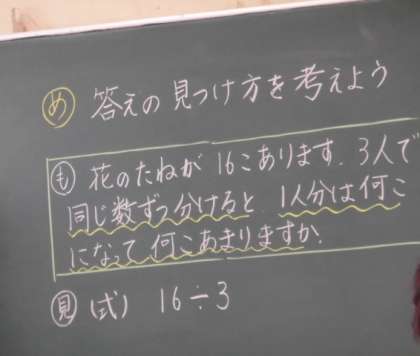 め 答えの見つけ方を考えよう
も 花のたねが16こあります。3人で
同じ数ずつ分けると 1人分は何こ
になって何こあまりますか。
見 (式) 16÷3